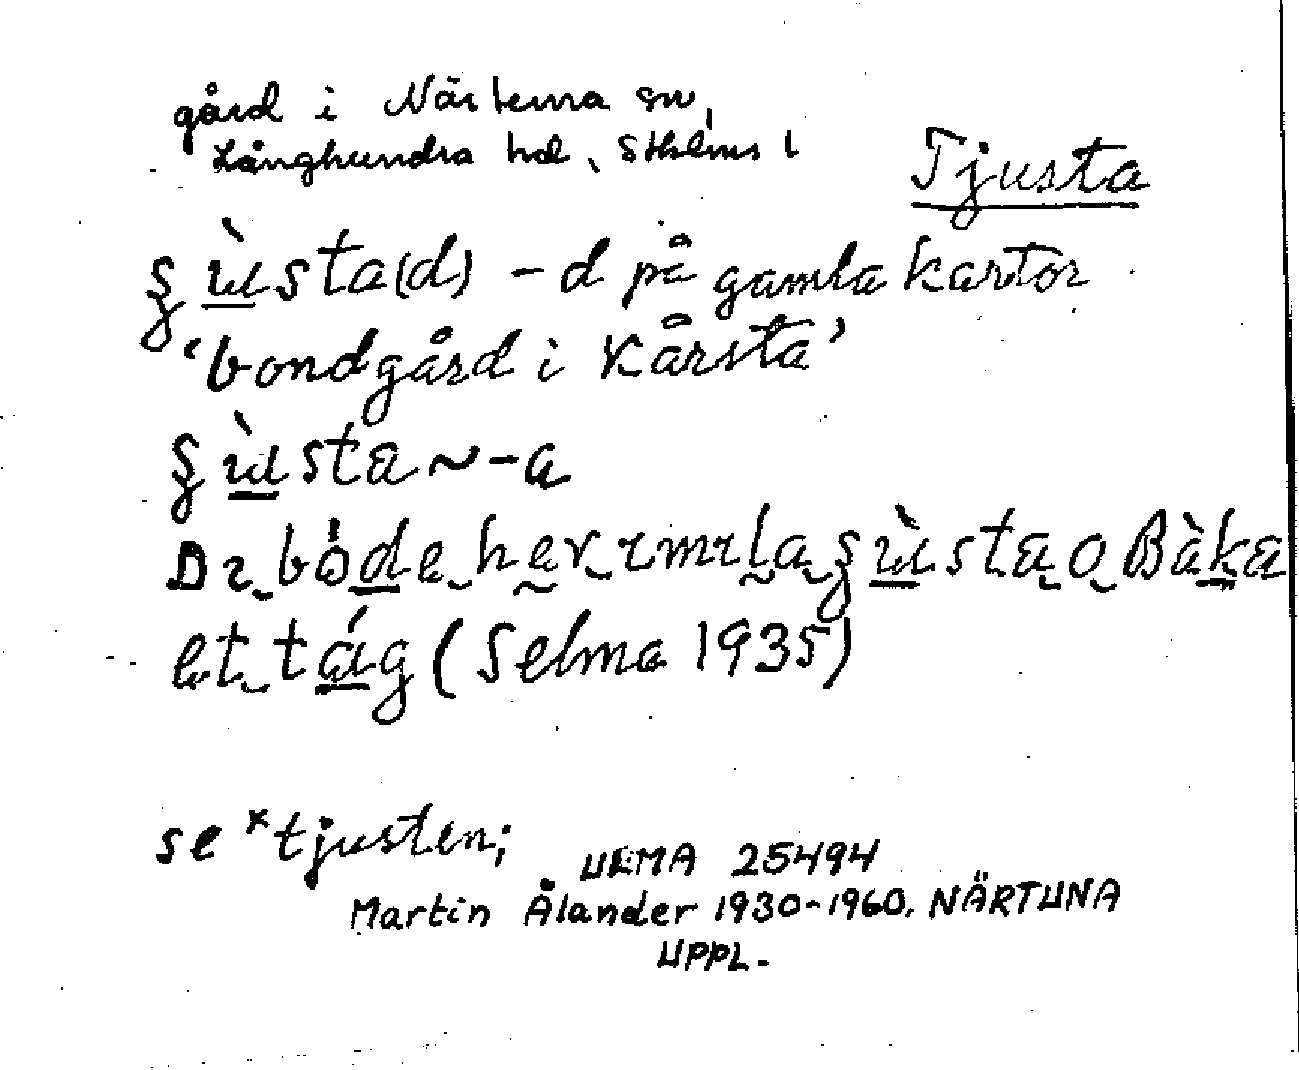 gård i Närtuna sn,
Långhundra hd, Sthlms l
Tjusta
ʂùsta(d) – d på gamla kartor
‘bondgård i Kårsta’
ʂùsta ~ -a
Dɪ bóde her ɪmɪla ʂùsta o Bàka
et tág (Selma 1935)
se *tjusten;
ULMA 25494
Martin Ålander 1930-1960. NÄRTUNA
UPPL.